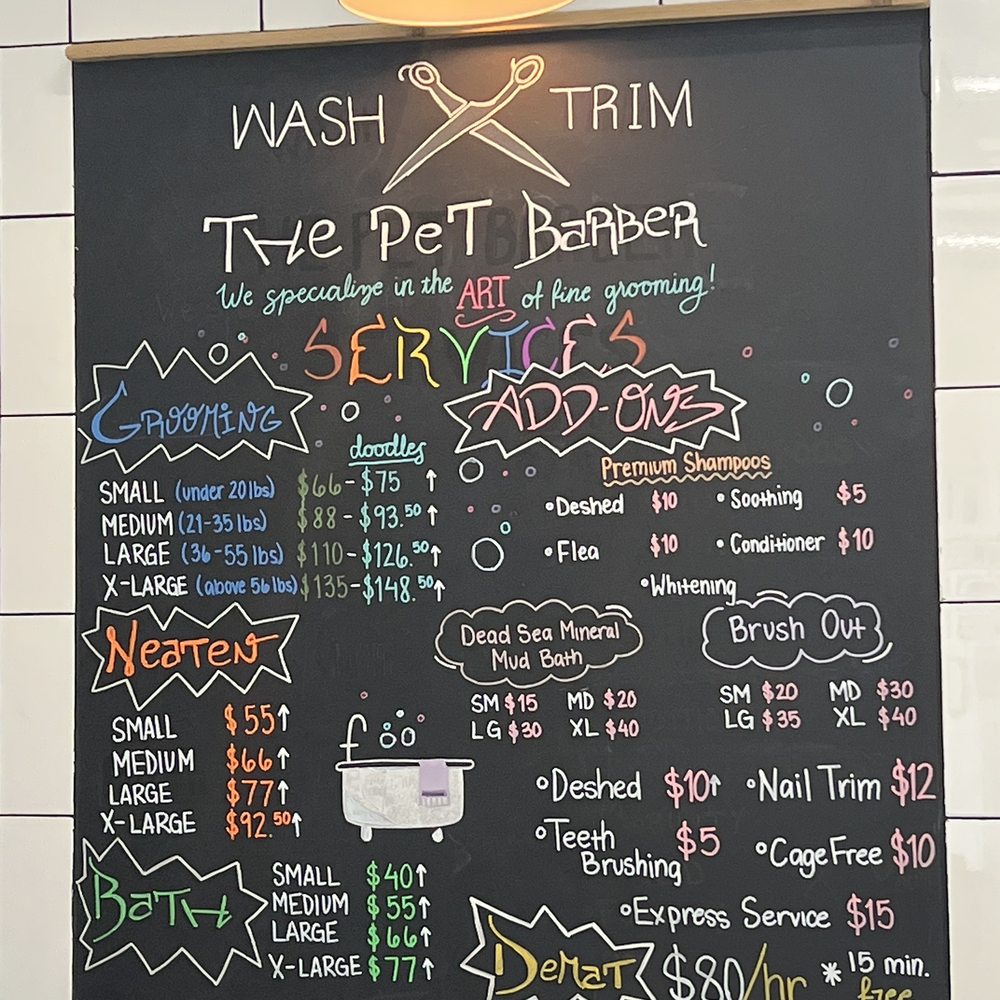 WASH TRIM
THe PeT BARBER
We specialize in the ART of fine grooming!
SERVICES
GROOMING
doodles
SMALL (under 20 lbs) $66 - $75 ↑
MEDIUM (21-35 lbs) $88 - $93.50 ↑
LARGE (36-55 lbs) $110 - $126.50 ↑
X-LARGE (above 56 lbs) $135 - $148.50 ↑
NEATEN
SMALL $55↑
MEDIUM $66↑
LARGE $77↑
X-LARGE $92.50↑
BATH
SMALL $40↑
MEDIUM $55↑
LARGE $66↑
X-LARGE $77↑
ADD-ONS
Premium Shampoos
•Deshed $10 •Soothing $5
•Flea $10 •Conditioner $10
•Whitening
Dead Sea Mineral
Mud Bath
SM $15 MD $20
LG $30 XL $40
Brush Out
SM $20 MD $30
LG $35 XL $40
•Deshed $10↑ •Nail Trim $12
•Teeth
Brushing $5 •Cage Free $10
•Express Service $15
DEMAT $80/hr *15 min.
free